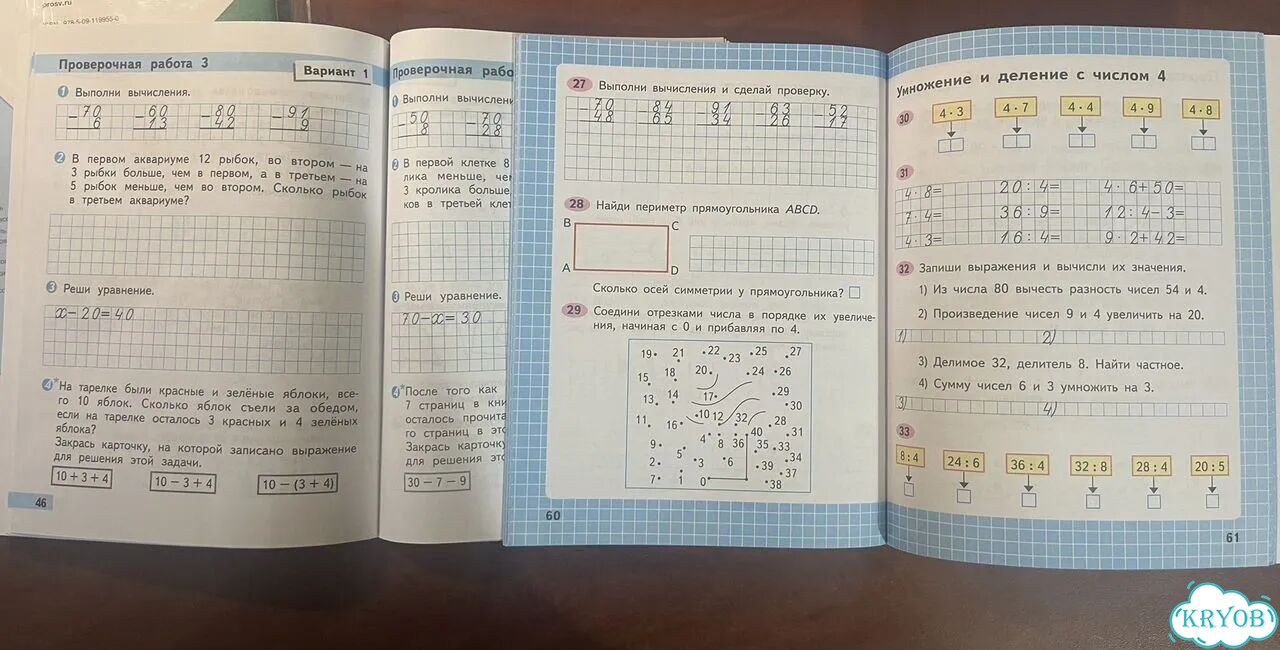 prosv.ru
ISBN 978-5-09-119955-0
Проверочная работа 3
Вариант 1
1 Выполни вычисления.
-70 -60 -80 -91
6 13 42 9
2 В первом аквариуме 12 рыбок, во втором — на
3 рыбки больше, чем в первом, а в третьем — на
5 рыбок меньше, чем во втором. Сколько рыбок
в третьем аквариуме?
3 Реши уравнение.
x-20=40
4* На тарелке были красные и зелёные яблоки, все-
го 10 яблок. Сколько яблок съели за обедом,
если на тарелке осталось 3 красных и 4 зелёных
яблока?
Закрась карточку, на которой записано выражение
для решения этой задачи.
10 + 3 + 4 10 − 3 + 4 10 − (3 + 4)
46
Проверочная рабо
1 Выполни вычислени
-50 -70
8 28
2 В первой клетке 8
лика меньше, че
3 кролика больше
ков в третьей клет
3 Реши уравнение.
70-x=30
4* После того как
7 страниц в кни
осталось прочита
го страниц в эт
Закрась карточку
для решения эт
30 − 7 − 9
27 Выполни вычисления и сделай проверку.
-70 -84 -91 -63 -52
48 65 34 26 17
28 Найди периметр прямоугольника ABCD.
B C
A D
Сколько осей симметрии у прямоугольника?
29 Соедини отрезками числа в порядке их увеличе-
ния, начиная с 0 и прибавляя по 4.
19 21 22 23 25 27
15 18 20 24 26
13 14 17 29 30
11 16 10 12 32 28
9 4 8 36 40 35 31 33
2 5 3 6 39 34 37
7 1 0 38
60
Умножение и деление с числом 4
30 4 · 3 4 · 7 4 · 4 4 · 9 4 · 8
31
4·8= 20:4= 4·6+50=
7·4= 36:9= 12:4-3=
4·3= 16:4= 9·2+42=
32 Запиши выражения и вычисли их значения.
1) Из числа 80 вычесть разность чисел 54 и 4.
2) Произведение чисел 9 и 4 увеличить на 20.
1) 2)
3) Делимое 32, делитель 8. Найти частное.
4) Сумму чисел 6 и 3 умножить на 3.
3) 4)
33
8 : 4 24 : 6 36 : 4 32 : 8 28 : 4 20 : 5
61
KRYOB